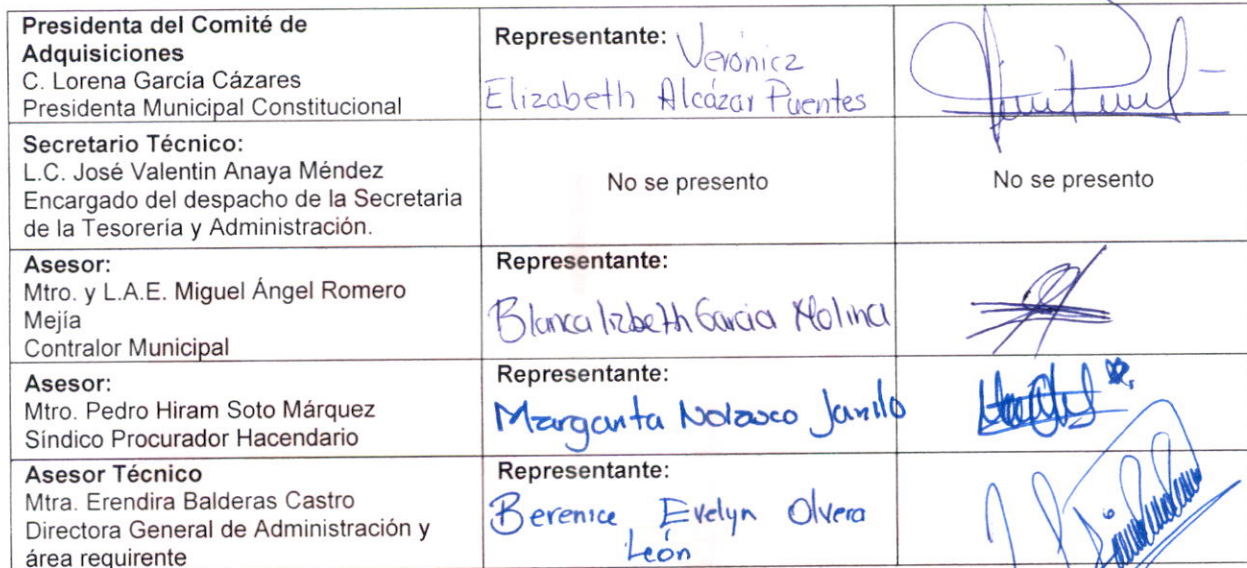 Presidenta del Comité de
Adquisiciones
C. Lorena García Cázares
Presidenta Municipal Constitucional
Representante: Verónica
Elizabeth Alcázar Puentes
Secretario Técnico:
L.C. José Valentin Anaya Méndez
Encargado del despacho de la Secretaria
de la Tesorería y Administración.
No se presento
No se presento
Asesor:
Mtro. y L.A.E. Miguel Ángel Romero
Mejía
Contralor Municipal
Representante:
Blanca lizbeth Garcia Molina
Asesor:
Mtro. Pedro Hiram Soto Márquez
Síndico Procurador Hacendario
Representante:
Margarita Nolazco
Asesor Técnico
Mtra. Erendira Balderas Castro
Directora General de Administración y
área requirente
Representante:
Berenice Evelyn Olvera
León